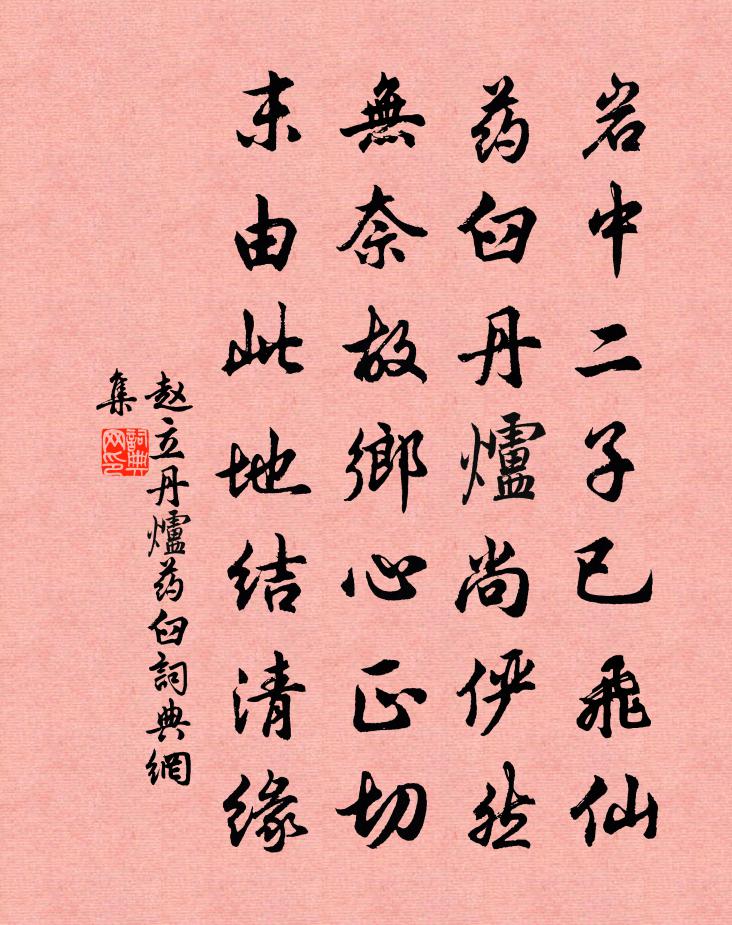 岩中二子已飛仙
药臼丹爐尚俨然
無奈故鄉心正切
末由此地结清緣
赵立丹爐药臼詞典網
集
詞典网印